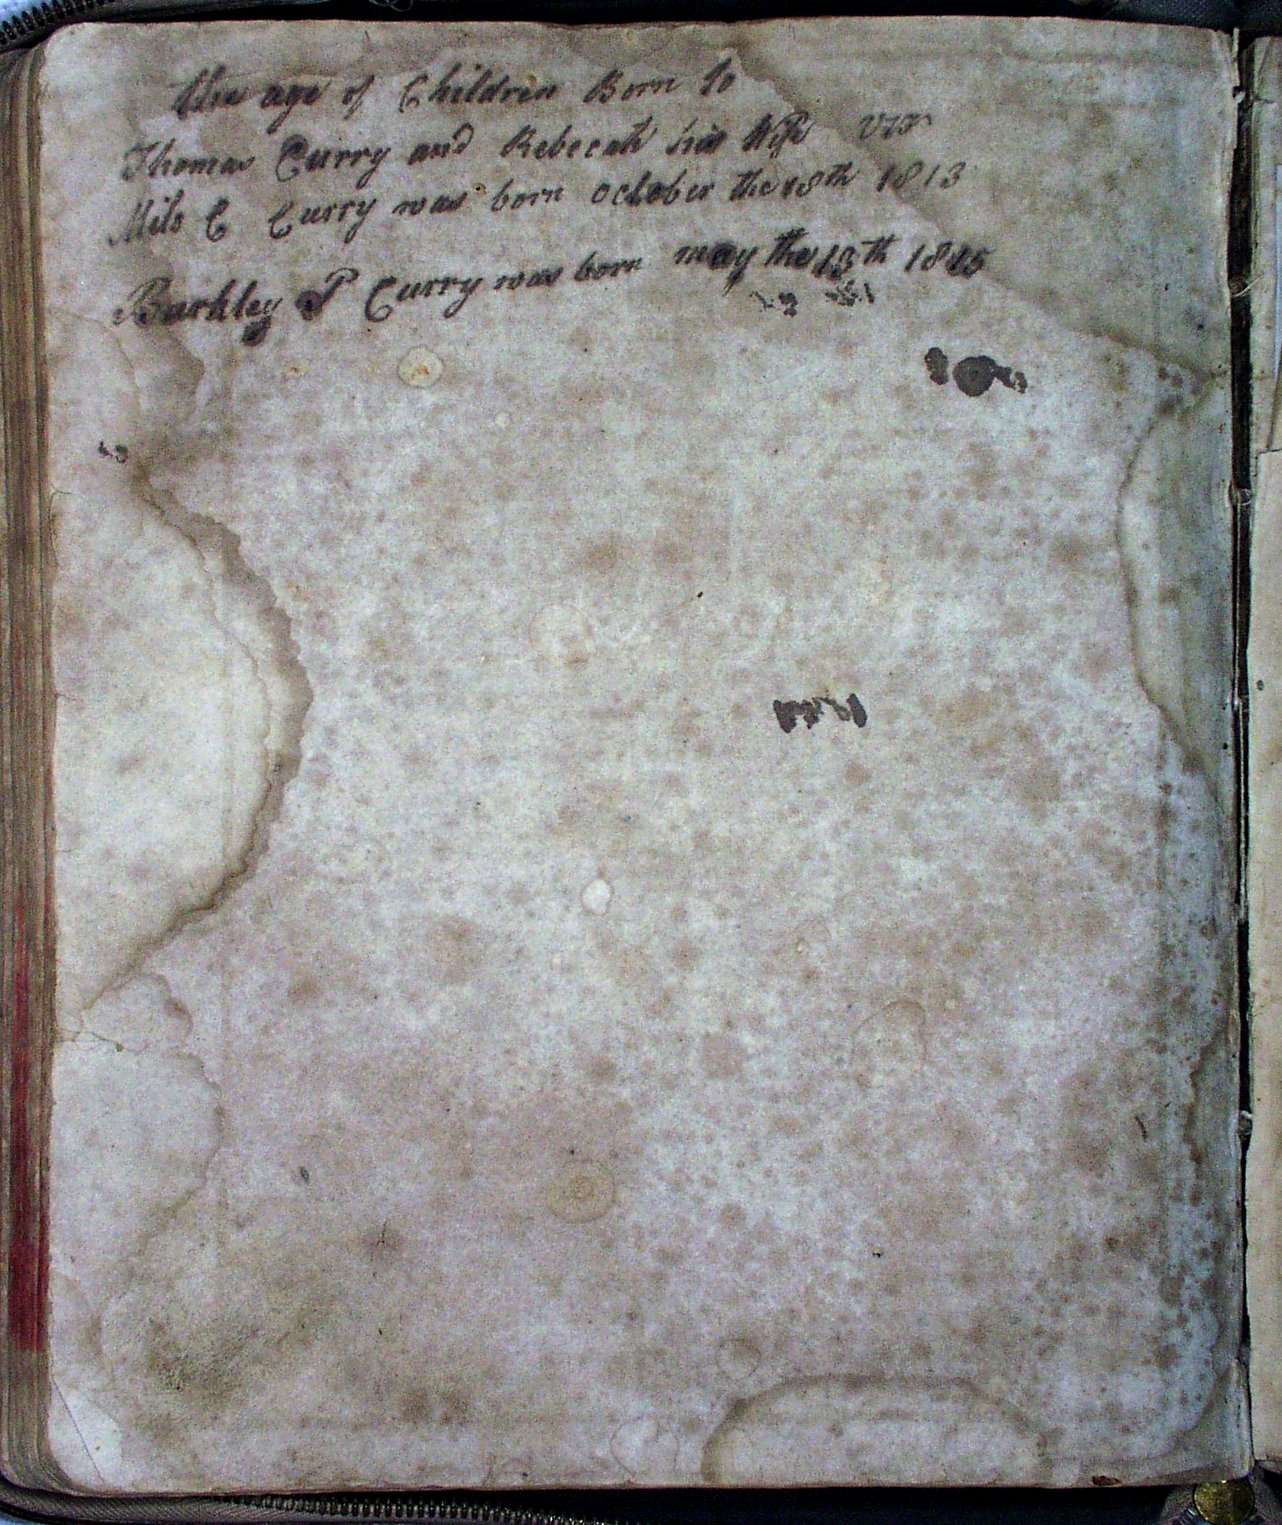 the age of Children Born to
Thomas Curry and Rebecah his Wife viz
Milo C Curry was born october the 18th 1813
Barkley P Curry was born may the 13th 1815